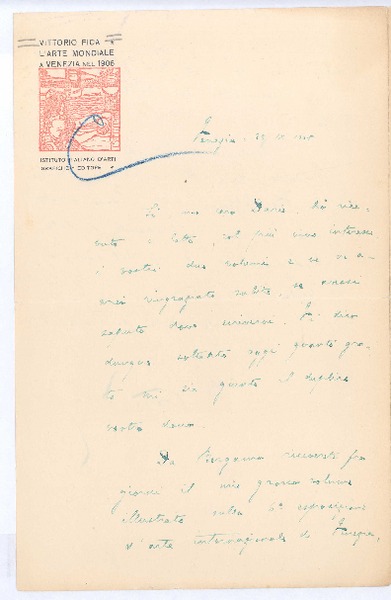 VITTORIO PICA
L'ARTE MONDIALE
A VENEZIA NEL 1905
ISTITUTO ITALIANO D'ARTI
GRAFICHE EDITORE
Venezia
mio caro Dario, Ho rice-
vuto e letto, col più vivo interesse
i vostri due volumi e ve ne a-
vrei ringraziato subito, se avessi
saputo dove scrivervi. Vi dico
dunque soltanto oggi quanto gra-
to vi sia quanto il duplice
vostro dono.
Da Bergamo riceverete fra
giorni il mio grosso volume
illustrato sulla 6ª esposizione
d'arte internazionale di Venezia,